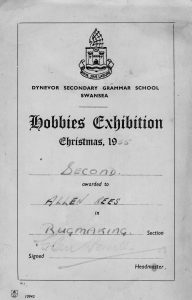 DYNEVOR SECONDARY GRAMMAR SCHOOL
SWANSEA
Hobbies Exhibition
Christmas, 195
SECOND
awarded to
ALLEN REES
in
RUGMAKING. Section
Signed
Headmaster.